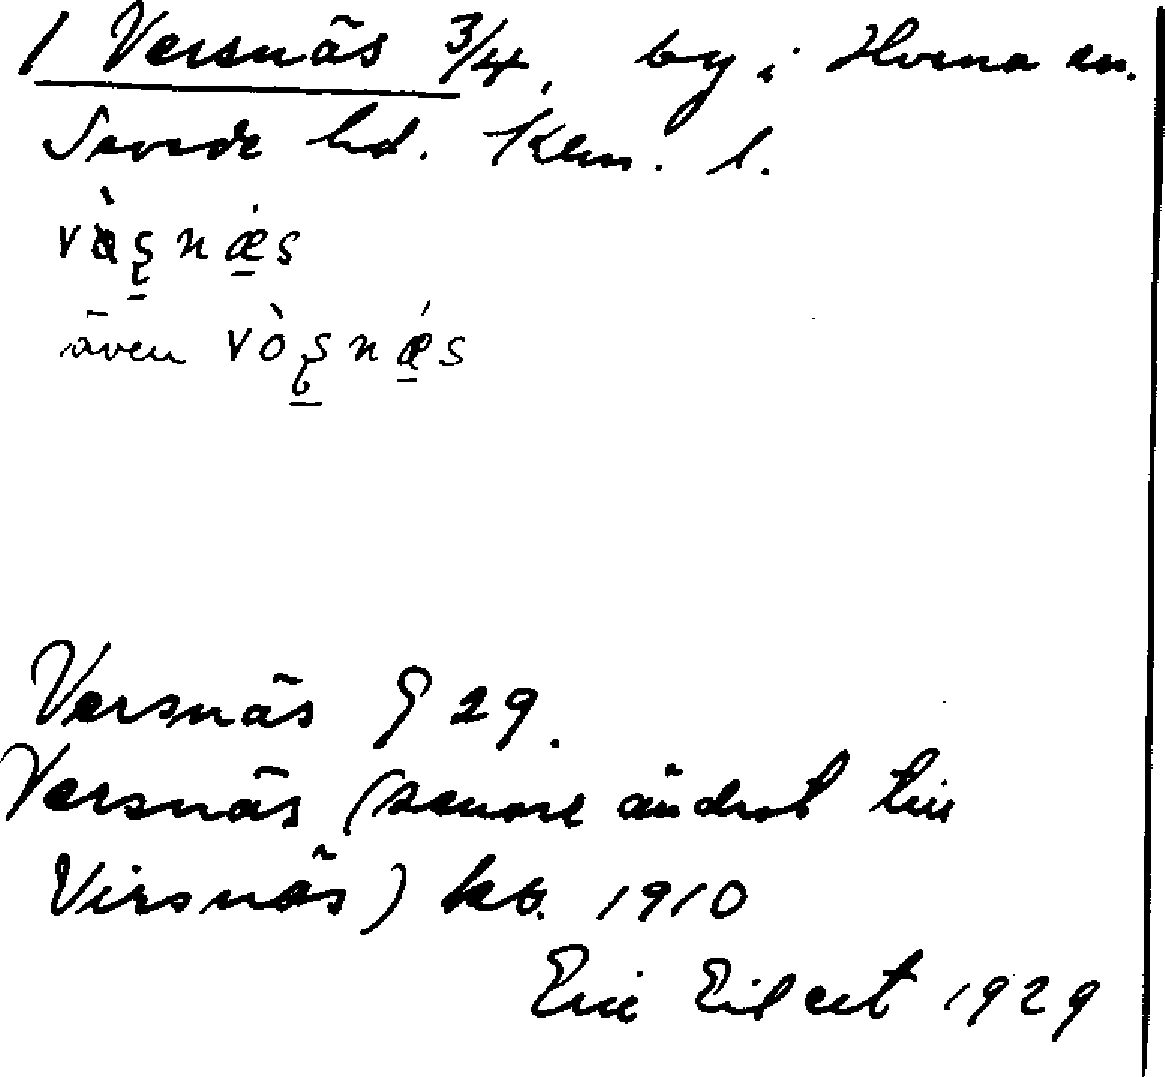 1 Versnäs 3/4, by i Hvena sn.
Sevede hd. Klm. l.
vàş̱nǽ̱s
även vòş̱nǽ̱s
Versnäs § 29.
Versnäs (senare ändrat till
Virsnäs) kb. 1910
Eric Eilert 1929